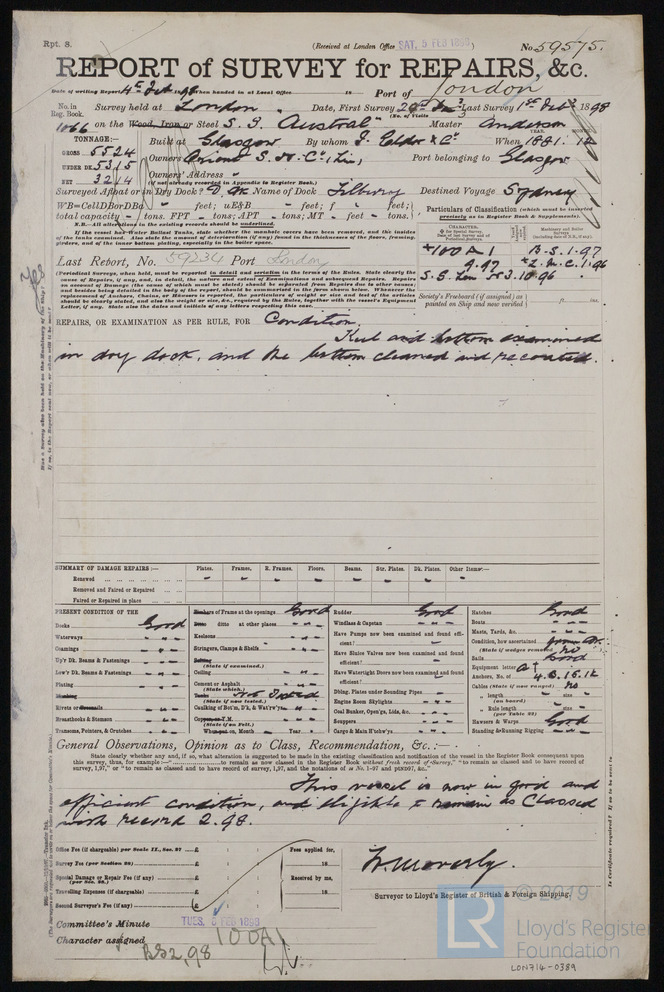 Rpt. 8.
(Received at London Office SAT. 5 FEB 1898)
No. 59575.
REPORT of SURVEY for REPAIRS, &c.
Date of writing Report 4th Feb 98 When handed in at Local Office 18 Port of London
No. in Reg. Book.
Survey held at London Date, First Survey Last Survey 1st Feb 1898
(No. of Visits 3
1066 on the Wood, Iron or Steel S.S. Austral Master Anderson
TONNAGE:—
GROSS 5524
UNDER DK 5315
NET 3214
Built at Glasgow By whom J. Elder & Co. When 1881. 12
YEAR. MONTH.
Owners Orient S. N. Co. Lim, Port belonging to Glasgow
Owners' Address
(if not already recorded in Appendix to Register Book.)
Surveyed Afloat or in Dry Dock? D. Dk Name of Dock Tilbury Destined Voyage Sydney
WB=CellDBorDBa feet; uE&B feet; f feet;
total capacity tons. FPT tons; APT tons; MT feet tons.
Particulars of Classification (which must be inserted precisely as in Register Book & Supplements).
N.B.—All alterations in the existing records should be underlined.
If the vessel has Water Ballast Tanks, state whether the manhole covers have been removed, and the insides of the tanks examined. Also state the amount of deterioration (if any) found in the thicknesses of the floors, framing, girders, and of the inner bottom plating, especially in the boiler space.
Last Report, No. 59234 Port London
(Periodical Surveys, when held, must be reported in detail and seriatim in the terms of the Rules. State clearly the cause of Repairs, if any, and, in detail, the nature and extent of Examinations and subsequent Repairs. Repairs on account of Damage (the cause of which must be stated) should be separated from Repairs due to other causes; and besides being detailed in the body of the report, should be summarised in the form shown below. Whenever the replacement of Anchors, Chains, or Hawsers is reported, the particulars of weight or size and test of the articles should be clearly stated, and also the weight or size, &c., required by the Rules, together with the vessel's Equipment Letter, if any. State also the dates and initials of any letters respecting this case.
+100 A 1 B.S. 1.97
9.97 +L.M.C. 1.96
S.S. Lon No 3. 10.96
Society's Freeboard (if assigned) as painted on Ship and now verified ft. ins.
REPAIRS, OR EXAMINATION AS PER RULE, FOR Condition.
Keel and bottom examined
in dry dock, and the bottom cleaned and recoated.
SUMMARY OF DAMAGE REPAIRS:— Plates. Frames. R. Frames. Floors. Beams. Str. Plates. Dk. Plates. Other Items:—
Renewed
Removed and Faired or Repaired
Faired or Repaired in place
PRESENT CONDITION OF THE
Decks Good
Waterways
Coamings
Up'r Dk. Beams & Fastenings
Low'r Dk. Beams & Fastenings
Plating
Rivets
Breasthooks & Stemson
Transoms, Pointers, & Crutches
of Frame at the openings Good
ditto at other places
Keelsons
Stringers, Clamps & Shelfs
(State if examined.)
Ceiling
Cement or Asphalt
(State which.)
Tanks Not Tested
(State if now tested.)
Caulking of Bot'm, D'k, & Wat'rw'ys
(State if on Felt.)
When put on, Month Year
Rudder Good
Windlass & Capstan
Have Pumps now been examined and found efficient?
Have Sluice Valves now been examined and found efficient?
Have Watertight Doors now been examined and found efficient?
Dbling. Plates under Sounding Pipes
Engine Room Skylights
Coal Bunker, Open'gs, Lids, &c.
Scuppers
Cargo & Main H'tchw'ys
Hatches Good
Boats
Masts, Yards, &c.
Condition, how ascertained
(State if wedges removed) no
Sails Good
Equipment letter A†
Anchors, No. of 4.B. 1S. 1K
Cables (State if now ranged) no
length size
(on board)
Rule length size
(per Table 22)
Hawsers & Warps Good
Standing & Running Rigging
General Observations, Opinion as to Class, Recommendation, &c.:—
This vessel is now in good and
efficient condition, and eligible to remain as Classed
with record 2.98.
Office Fee (if chargeable) per Scale II., Sec. 27 £
Survey Fee (per Section 29) £
Special Damage or Repair Fee (if any) £
(per Sec. 28.)
Travelling Expenses (if chargeable) £
Second Surveyor's Fee (if any) £
Fees applied for, 18
Received by me, 18
Surveyor to Lloyd's Register of British & Foreign Shipping.
Committee's Minute TUES. 8 FEB 1898
Character assigned 100A1
BS2,98
© 2019
LR
Lloyd's Register
Foundation
LON714-0389